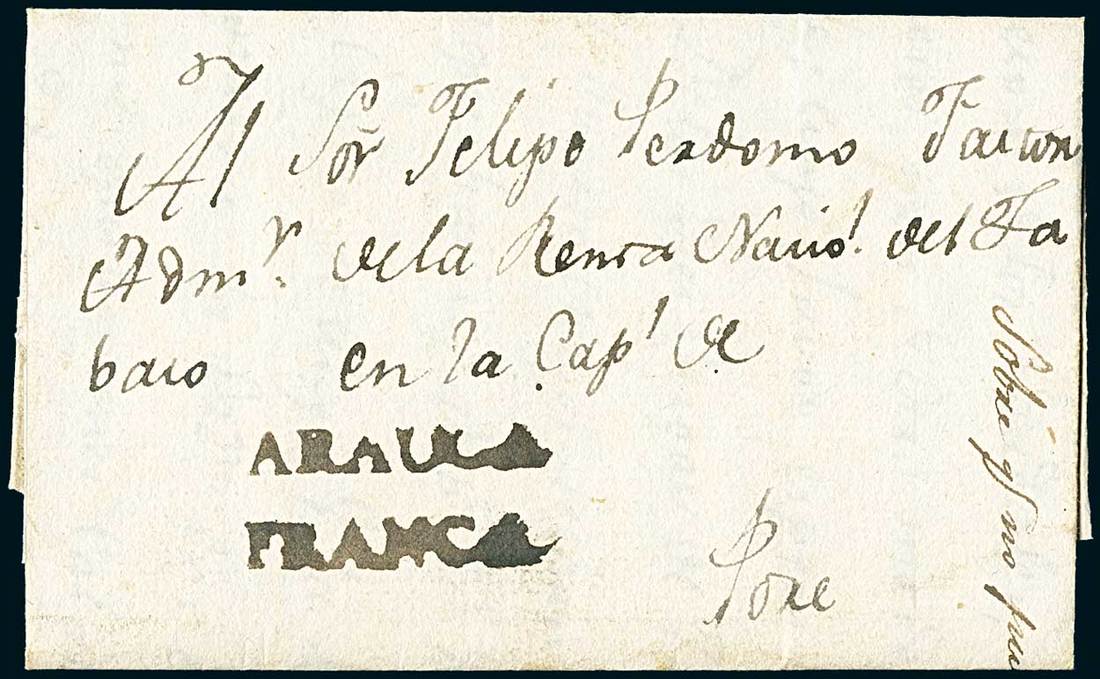 Al Sor Felipe Perdomo Factor
Admr. de la Renta Naciol. del Ta
baco en la Capl de
ARAUCA
FRANCA
Pore
Sobre qe no